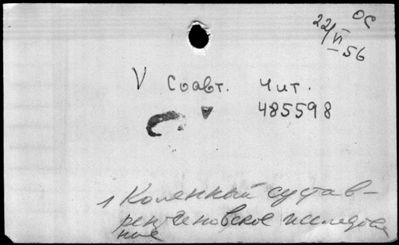 ОС
22/VI
56
V Соавт. Чит.
485598
1 Коленный сустав-
рентгеновское исследова
ние